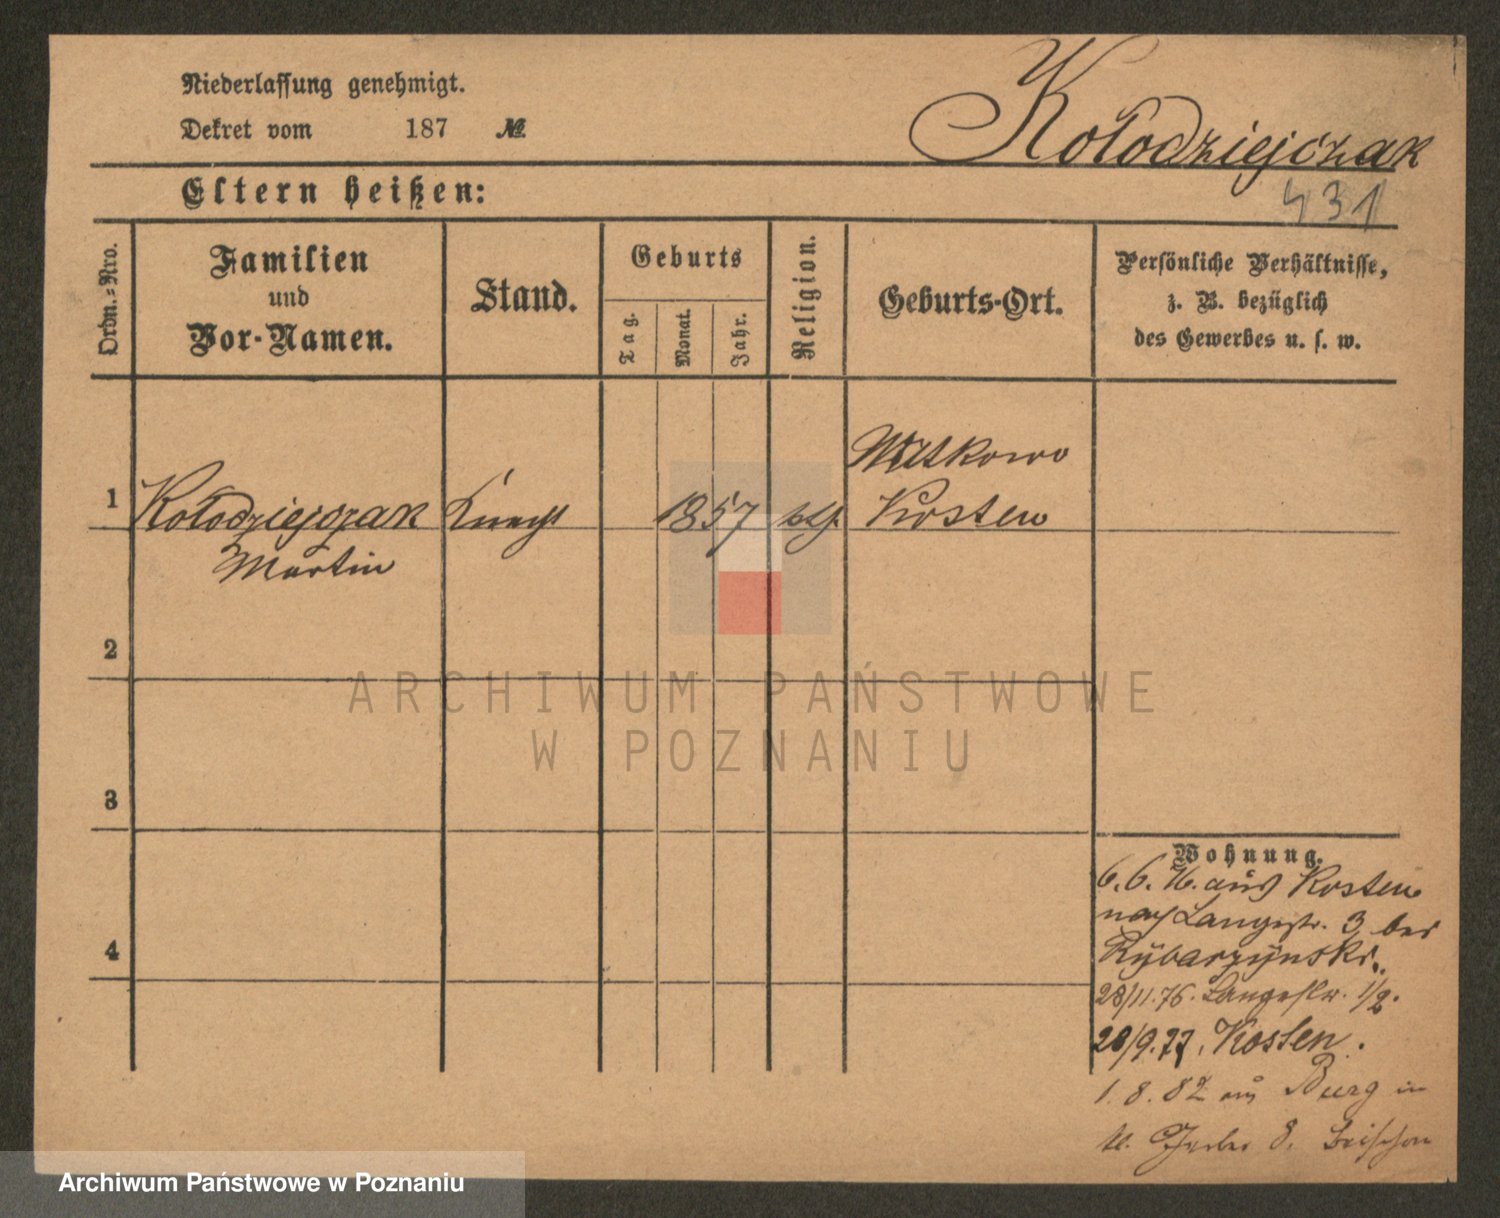 Niederlassung genehmigt.
Dekret vom 187 №
Kołodziejczak
431
Eltern heißen:
Ordn.-Nro.
Familien
und
Vor-Namen.
Stand.
Geburts
Tag.
Monat.
Jahr.
Religion.
Geburts-Ort.
Persönliche Verhältnisse,
z. B. bezüglich
des Gewerbes u. s. w.
1
Kołodziejczak
Martin
Knecht
1857
kth.
Witkowo
Kosten
2
3
4
Wohnung.
6. 6. 76. aus Kosten
nach Langestr. 3 bei
Rybarzynski.
28/11.76. Langestr. 1/2.
28/9.77. Kosten.
1. 8. 82 aus Burg in
ARCHIWUM PAŃSTWOWE
W POZNANIU
Archiwum Państwowe w Poznaniu